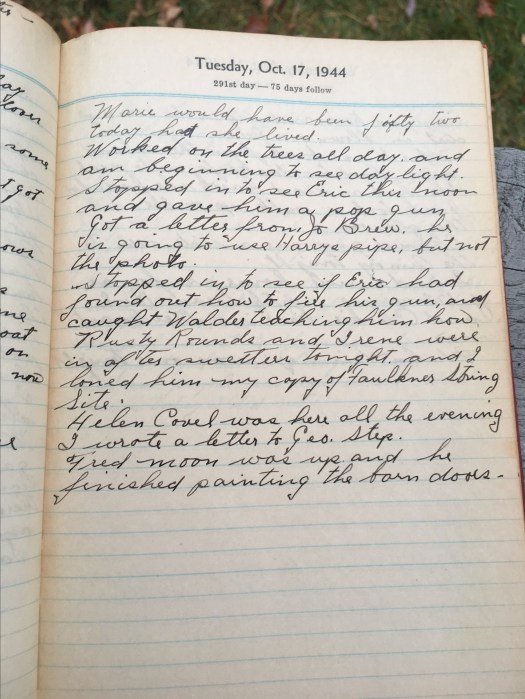 Tuesday, Oct. 17, 1944
291st day — 75 days follow
Marie would have been fifty two
today had she lived.
Worked on the trees all day. and
am beginning to see daylight.
Stopped in to see Eric this noon
and gave him a pop gun
Got a letter from Jo Brew. he
is going to use Harrys pipe, but not
the photo.
stopped in to see if Eric had
found out how to fire his gun, and
caught Walder teaching him how
Rusty Rounds and Irene were
in after swetters tonight. and I
loned him my copy of Faulkner String
Site.
Helen Covel was here all the evening
I wrote a letter to Geo. Step.
Fred moon was up. and he
finished painting the barn doors-
ay
lover
some
I got
ows
me
oat
on
now